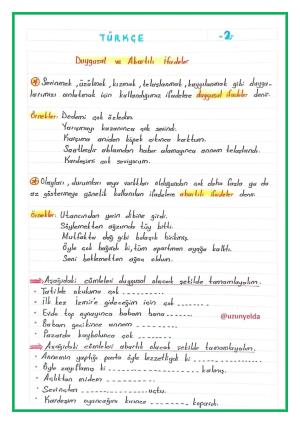 TÜRKÇE
-2-
Duygusal ve Abartılı ifadeler
Sevinmek, üzülmek, kızmak, telaşlanmak, kaygılanmak gibi duygu-
larımızı anlatmak için kullandığımız ifadelere duygusal ifadeler denir.
Örnekler: Dedemi çok özledim.
Yarışmayı kazanınca çok sevindi.
Karşıma aniden köpek çıkınca korktum.
Saatlerdir ablamdan haber alamayınca annem telaşlandı.
Kardeşimi çok seviyorum.
Olayları, durumları veya varlıkları olduğundan çok daha fazla ya da
az göstermeye yönelik kullanılan ifadelere abartılı ifadeler denir.
Örnekler: Utancından yerin dibine girdi.
Söylemekten ağzımda tüy bitti.
Mutfakta dağ gibi bulaşık birikmiş.
Öyle çok bağırdı ki, tüm apartman ayağa kalktı.
Seni beklemekten ağaç oldum.
Aşağıdaki cümleleri duygusal olacak şekilde tamamlayalım.
Tatilde okuluma çok
İlk kez İzmir'e gideceğim için çok
Evde top oynayınca babam bana
Babam gecikince annem
Pazarda kaybolunca çok
@uzunyelda
Aşağıdaki cümleleri abartılı olacak şekilde tamamlayalım.
Annemin yaptığı pasta öyle lezzetliydi ki
Öyle zayıflamış ki kalmış.
Açlıktan midem
Sevinçten uçtu.
Kardeşim oyuncağını kırınca kopardı.